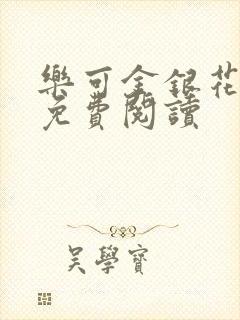 樂可金銀花
免費閱讀
吳學寶